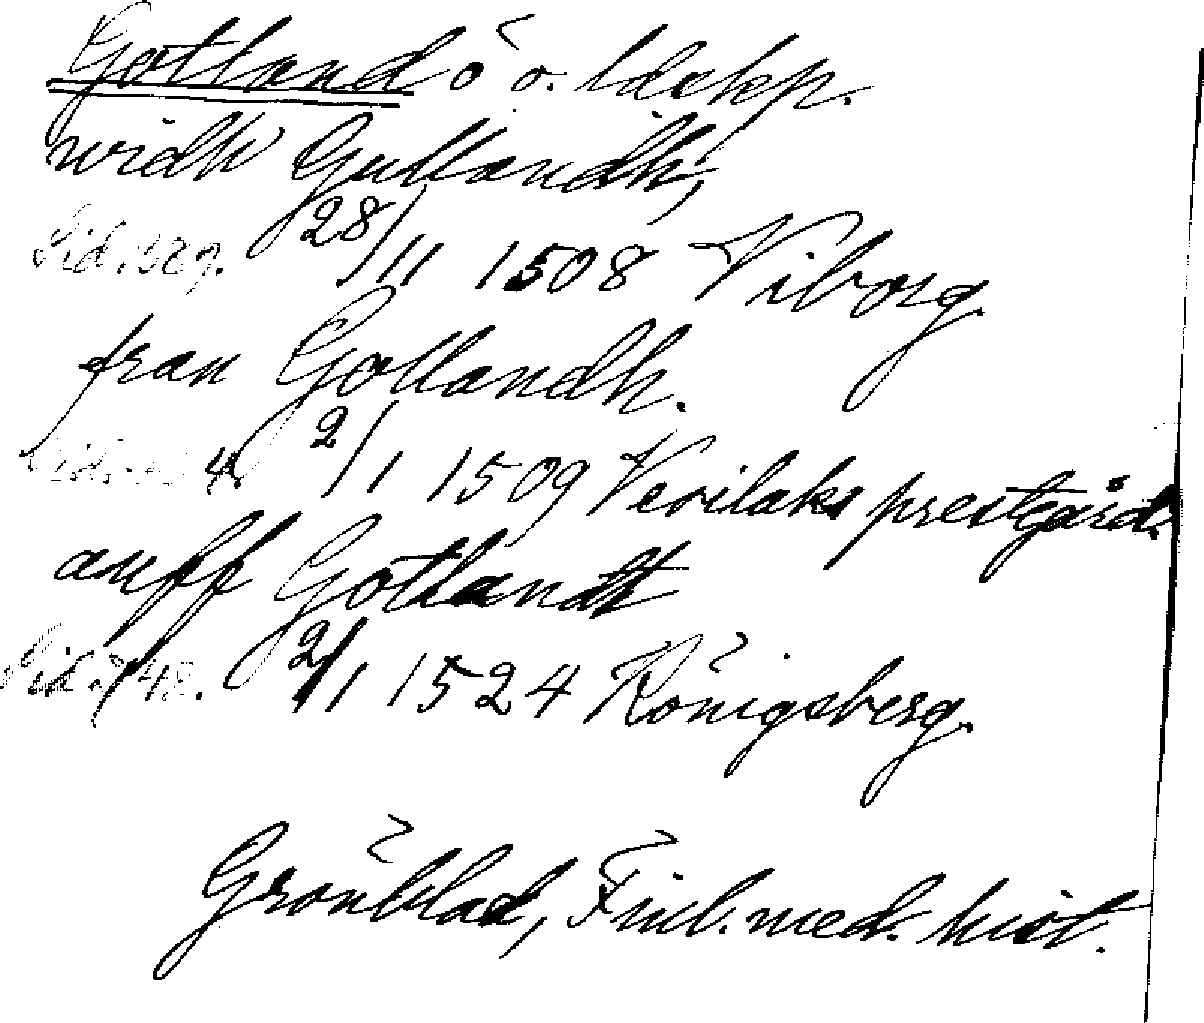 Gotland ö o. ldskp.
widh Gullandh,
Sid. 329. 28/11 1508 Viborg.
fran Gollandh.
Sid. 4. 2/1 1509 Verilaks prestgård.
auff Gotlandt
Sid. 748. 2/1 1524 Königsberg.
Grönblad, Finl. med. hist.